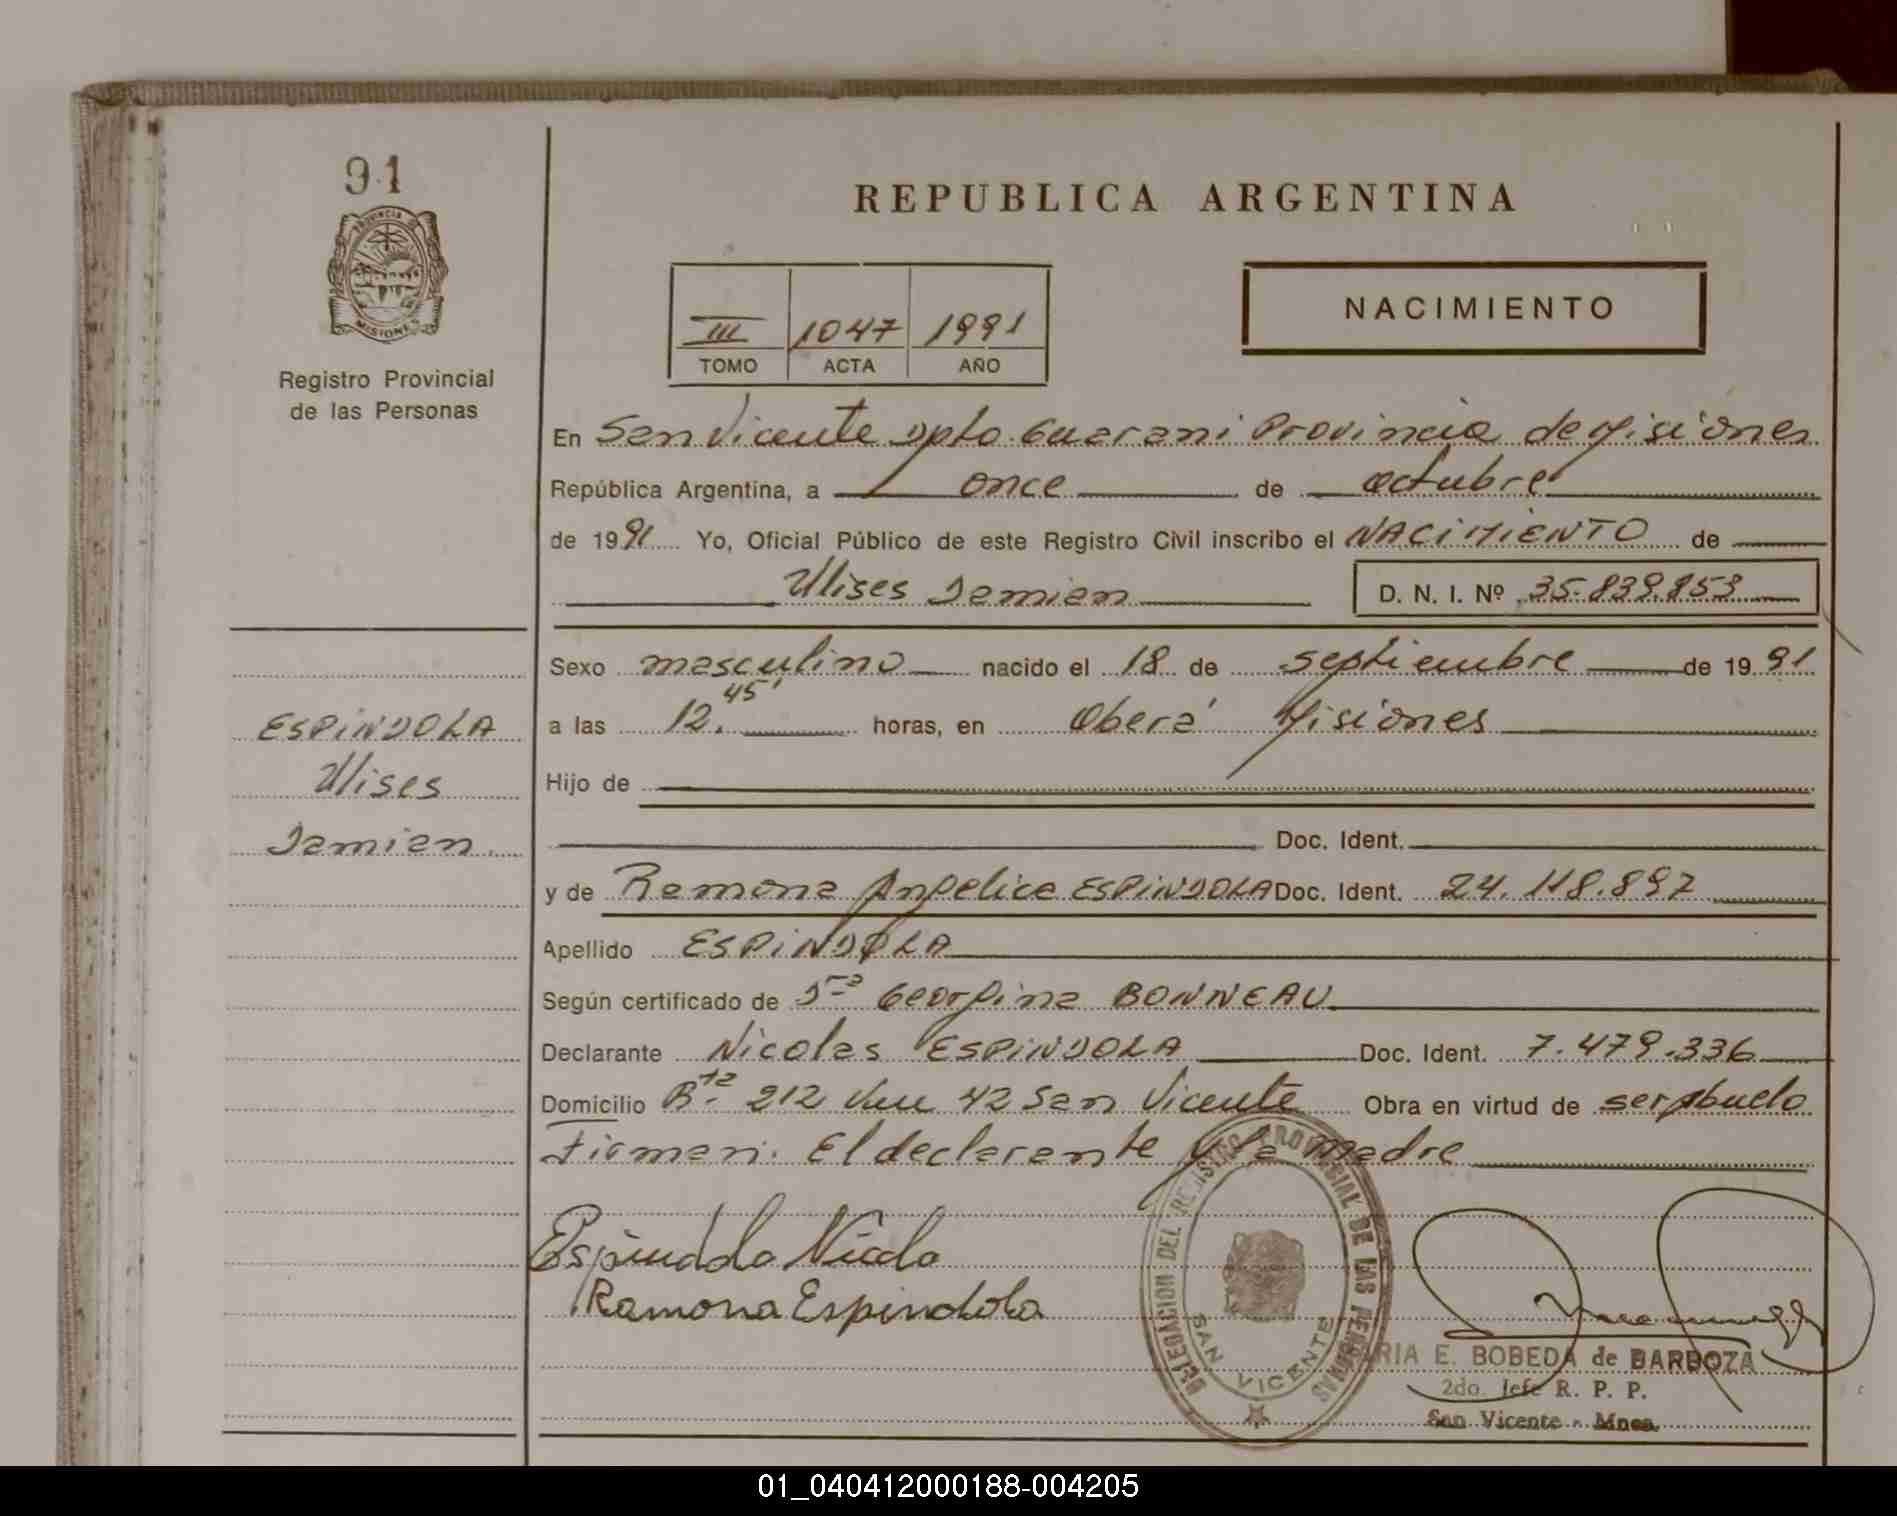 91
PROVINCIA DE
MISIONES
Registro Provincial
de las Personas
REPUBLICA ARGENTINA
III 1047 1991
TOMO ACTA AÑO
NACIMIENTO
En San Vicente Dpto. Guarani Provincia de Misiones
República Argentina, a once de octubre
de 1991 Yo, Oficial Público de este Registro Civil inscribo el NACIMIENTO de
Ulises Damian D. N. I. Nº 35.839.853
Sexo masculino nacido el 18 de septiembre de 1991
a las 12.45' horas, en Oberá Misiones
Hijo de
Doc. Ident.
y de Ramona Angelica ESPINDOLA Doc. Ident. 24.118.897
Apellido ESPINDOLA
Según certificado de Dra Georgina BONNEAU
Declarante Nicolas ESPINDOLA Doc. Ident. 7.479.336
Domicilio Bta. 212 km 42 San Vicente Obra en virtud de ser Abuelo
Firman: El declarante y la madre
ESPINDOLA
Ulises
Damian.
Espindola Nicola
Ramona Espindola
DELEGACION DEL REGISTRO PROVINCIAL DE LAS PERSONAS
SAN VICENTE
MARIA E. BOBEDA de BARBOZA
2do. Jefe R. P. P.
San Vicente - Mnes.
01_040412000188-004205